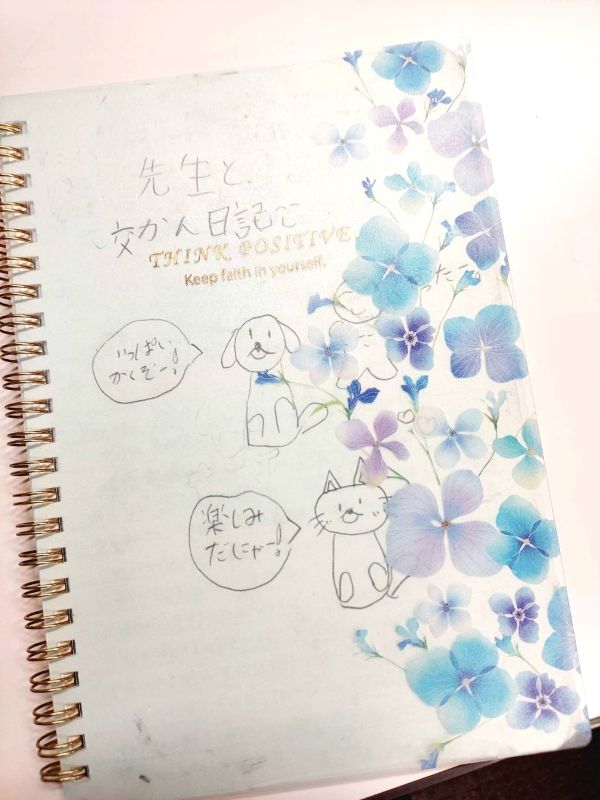 先生と、
交かん日記
THINK POSITIVE
Keep faith in yourself.
ったー。
いっぱい
かくぞー!
楽しみ
だにゃー!